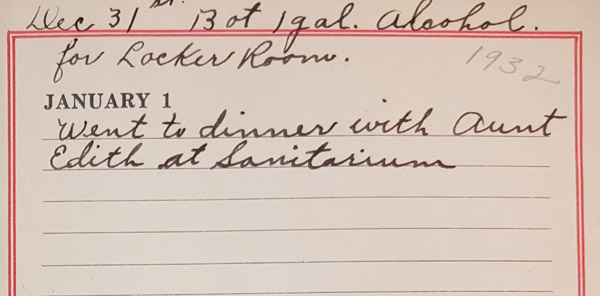 Dec 31st. Bot 1 gal. Alcohol.
for Locker Room.
1932
JANUARY 1
Went to dinner with Aunt
Edith at Sanitarium